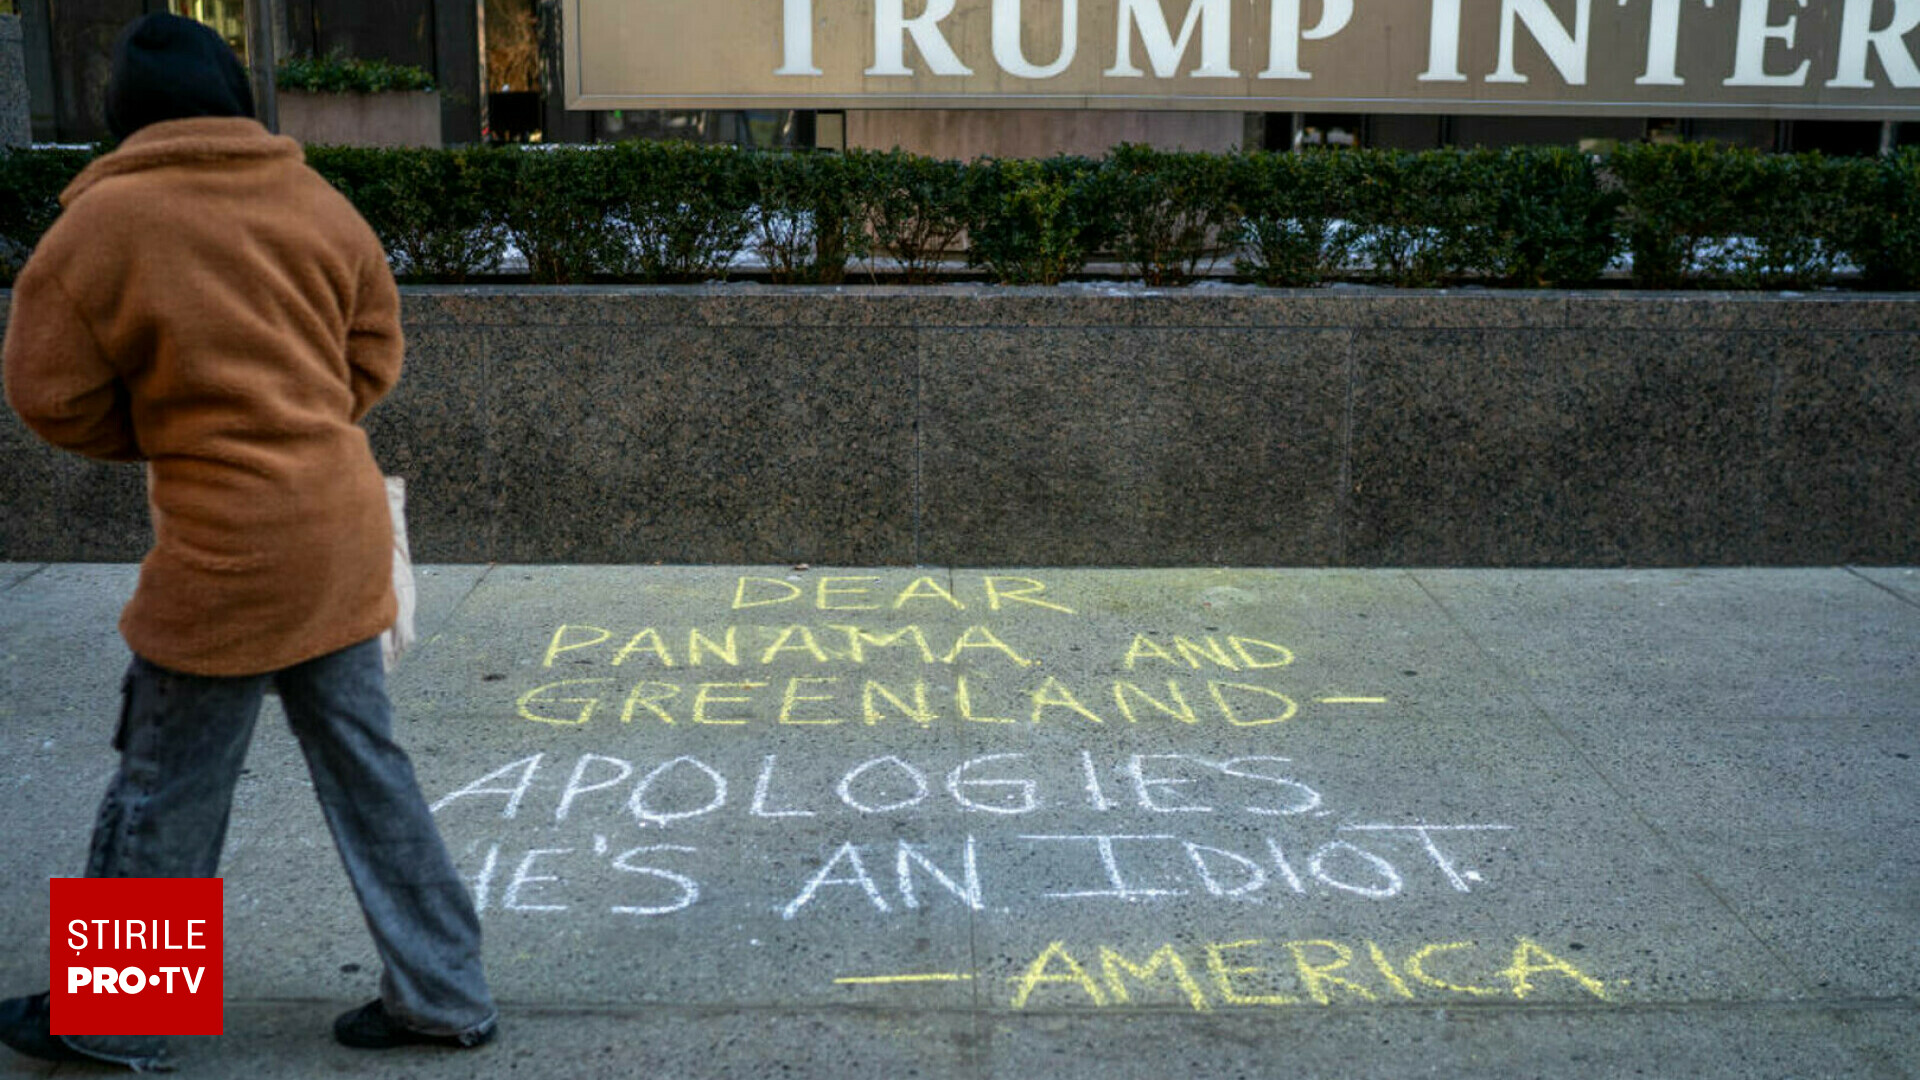 TRUMP INTER
DEAR
PANAMA AND
GREENLAND—
APOLOGIES,
HE'S AN IDIOT.
— AMERICA
ȘTIRILE
PRO•TV